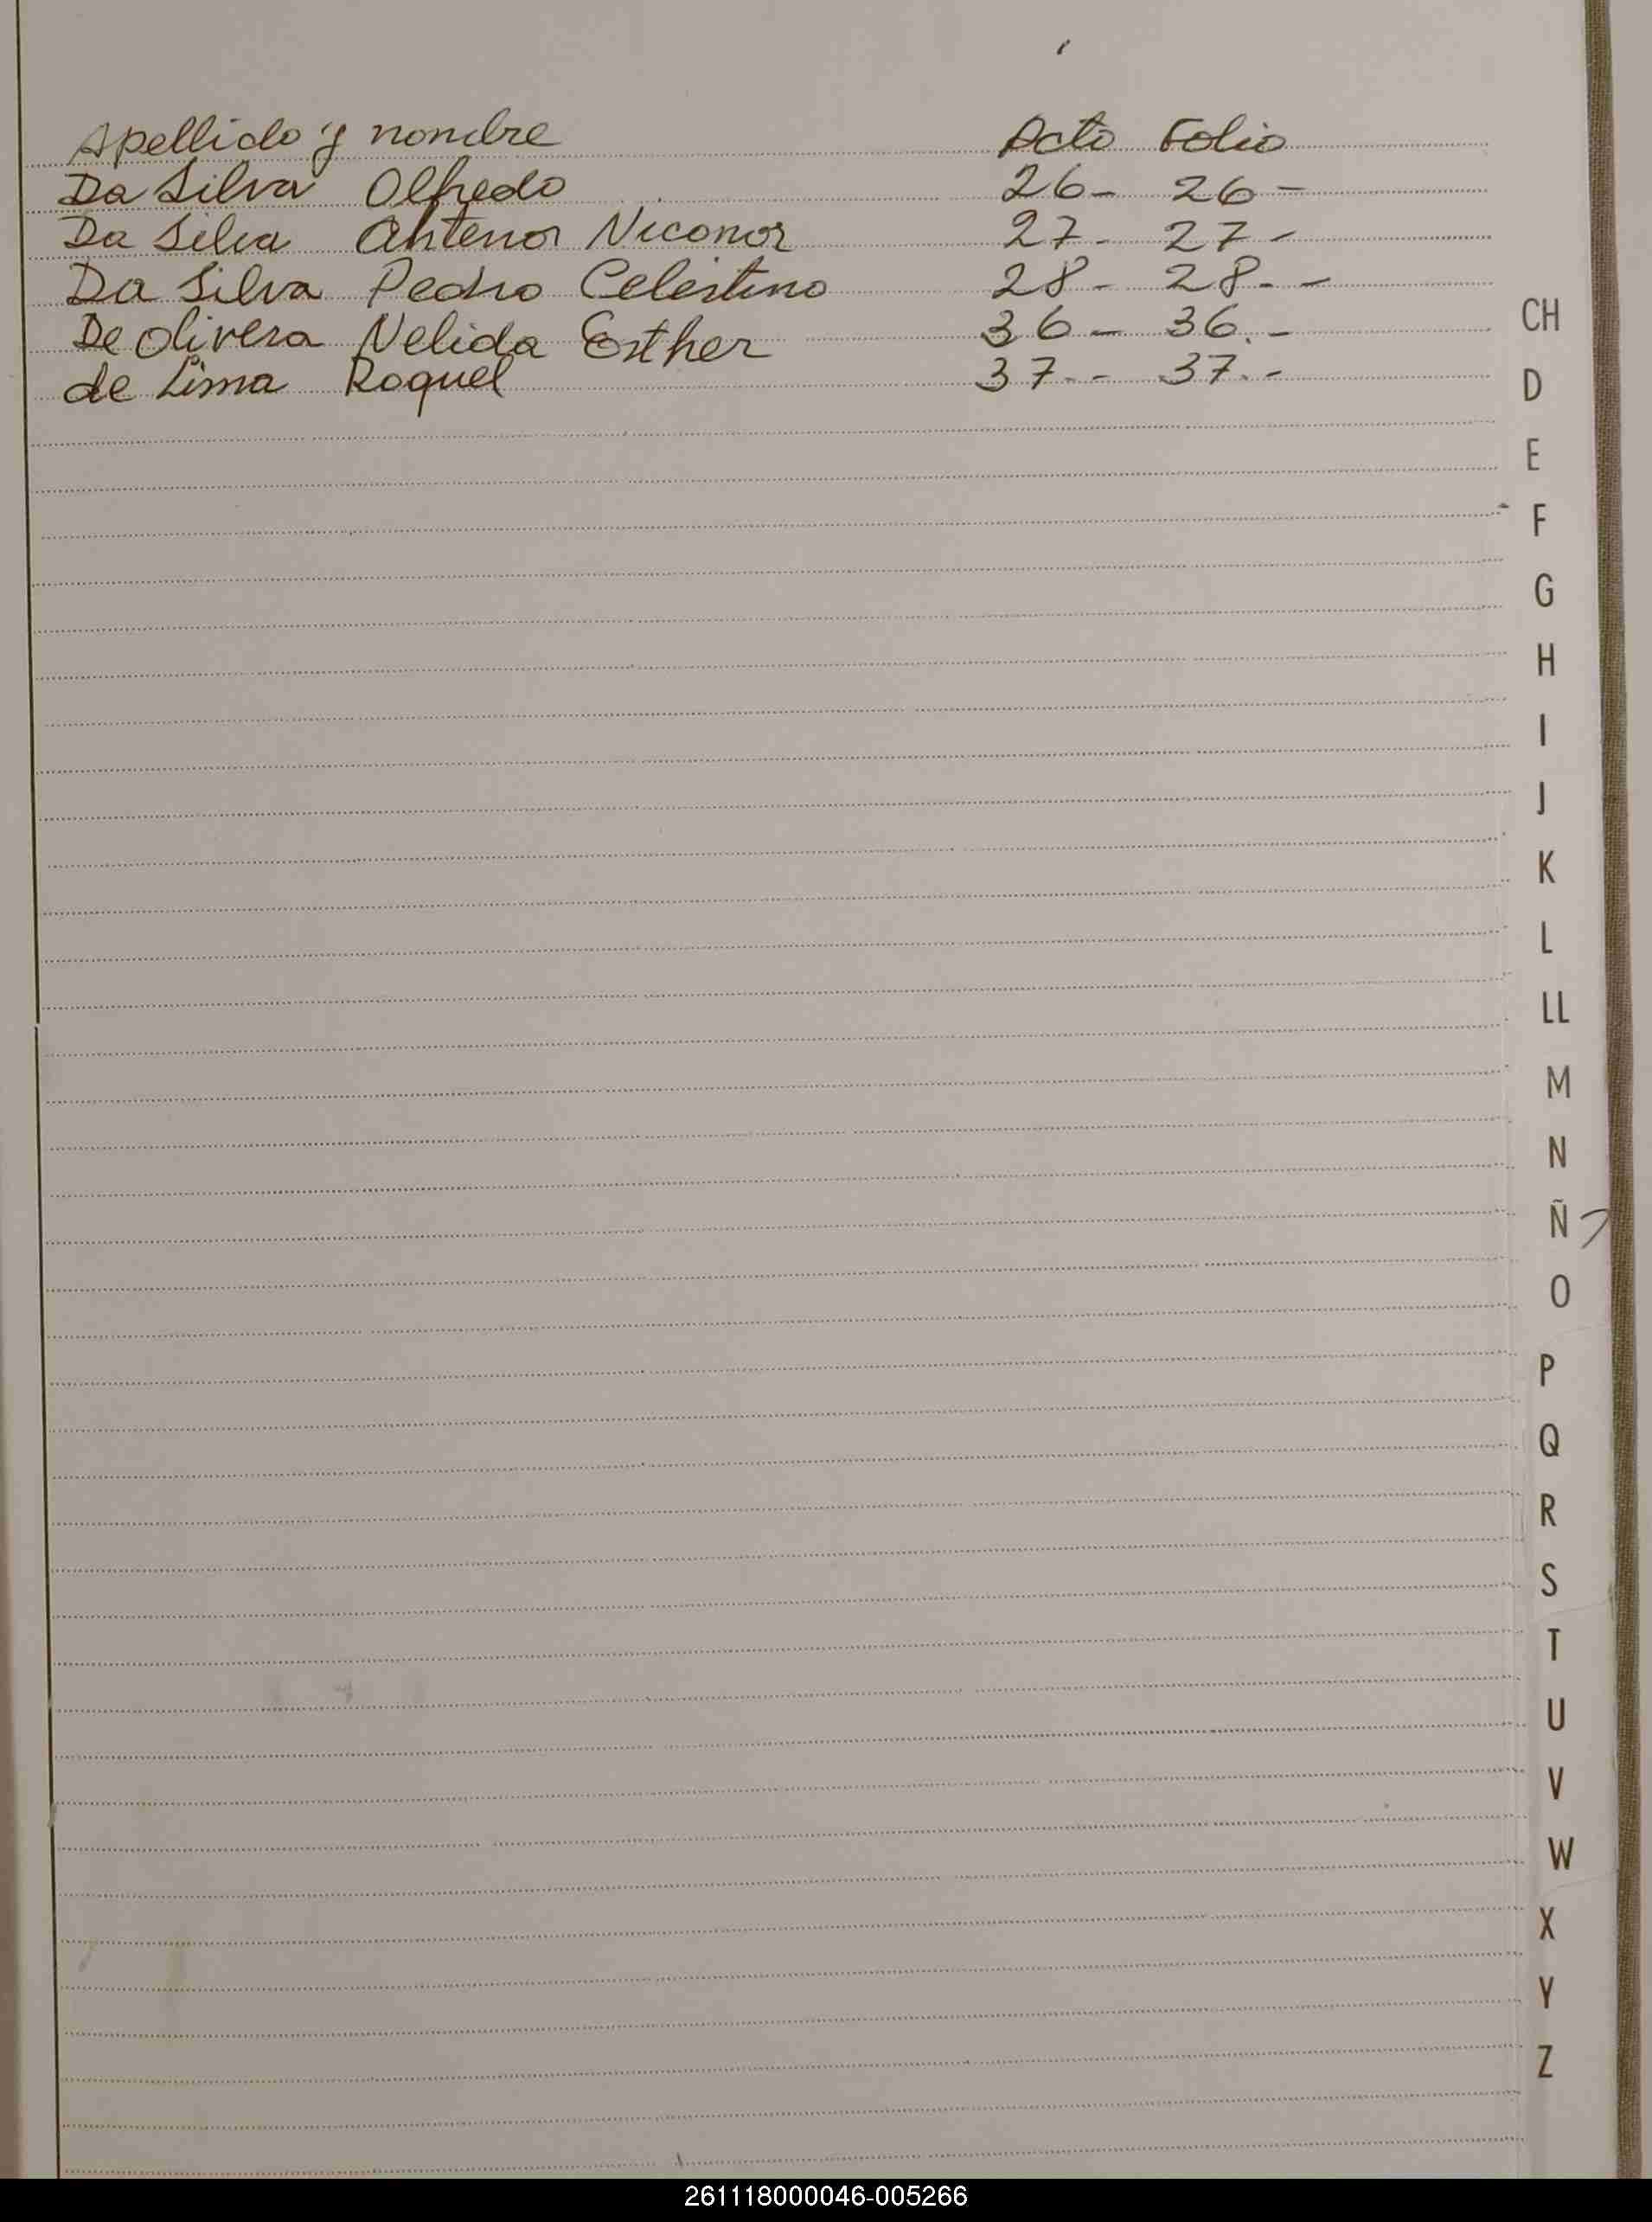 Apellido y nombre Acta Folio
Da Silva Alfredo 26- 26-
Da Silva Antenor Niconor 27- 27-
Da Silva Pedro Celestino 28- 28.-
De Olivera Nelida Esther 36- 36.-
de Lima Raquel 37.- 37.-
CH
D
E
F
G
H
I
J
K
L
LL
M
N
Ñ
O
P
Q
R
S
T
U
V
W
X
Y
Z
261118000046-005266